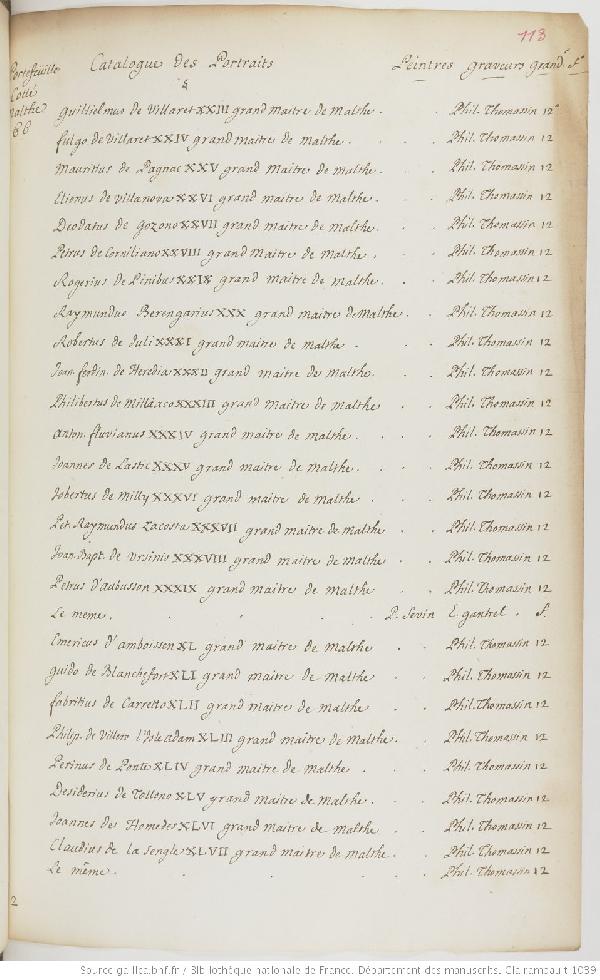 118
Portefeuille
Cotté
malthe
66
Catalogue des Portraits Peintres graveurs grandr
Guillielmus de Villaret XXIII grand maitre de malthe. Phil. Thomassin 12°
fulgo de Villaret XXIV grand maitre de malthe. Phil. Thomassin 12
Mauritius de Pagnac XXV grand maitre de malthe. Phil. Thomassin 12
Elionus de Villanova XXVI grand maitre de malthe. Phil. Thomassin 12
Deodatus de Gozono XXVII grand maitre de malthe. Phil. Thomassin 12
Petrus de Corniliano XXVIII grand maitre de malthe. Phil. Thomassin 12
Rogerius de Pinibus XXIX grand maitre de malthe. Phil. Thomassin 12
Raymundus Berengarius XXX grand maitre de malthe. Phil. Thomassin 12
Robertus de Juli XXXI grand maitre de malthe. Phil. Thomassin 12
Joan. ferdin. de Heredia XXXII grand maitre de malthe. Phil. Thomassin 12
Philibertus de Milláaco XXXIII grand maitre de malthe. Phil. Thomassin 12
Anton. fluvianus XXXIV grand maitre de malthe. Phil. Thomassin 12
Joannes de Lastic XXXV grand maitre de malthe. Phil. Thomassin 12
Jobertus de Milly XXXVI grand maitre de malthe. Phil. Thomassin 12
Pet. Raymundus Zacosta XXXVII grand maitre de malthe. Phil. Thomassin 12
Joan. Bapt. de Ursinis XXXVIII grand maitre de malthe. Phil. Thomassin 12
Petrus D'aubusson XXXIX grand maitre de malthe Phil. Thomassin 12
Le meme. P. Sevin E. gantrel. f.
Emericus d'amboisson XL grand maitre de malthe Phil. Thomassin 12
guido de Blanchefort XLI grand maitre de malthe Phil. Thomassin 12
fabritius de Carretto XLII grand maitre de malthe Phil. Thomassin 12
Philip. de Villers l'Isle adam XLIII grand maitre de malthe. Phil. Thomassin 12
Perinus de Ponte XLIV grand maitre de malthe. Phil. Thomassin 12
Desiderius de Tolleno XLV grand maitre de malthe. Phil. Thomassin 12
Joannes des Homedes XLVI grand maitre de malthe. Phil. Thomassin 12
Claudius de la Sengle XLVII grand maitre de malthe. Phil. Thomassin 12
Le même. Phil. Thomassin 12
2
Source gallica.bnf.fr / Bibliothèque nationale de France. Département des manuscrits. Clairambault 1039